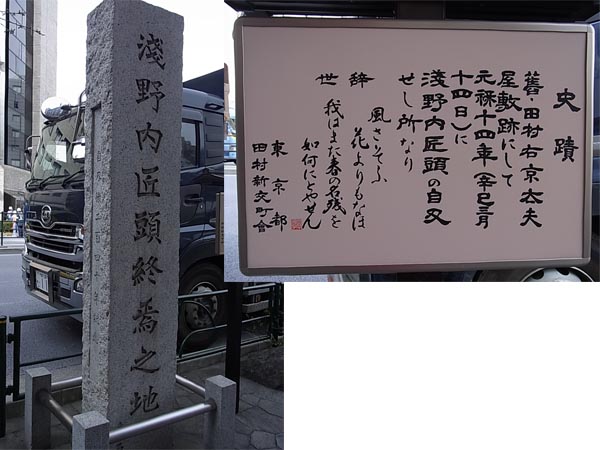 淺野内匠頭終焉之地
史蹟
舊・田村右京太夫
屋敷跡にして
元禄十四年(辛巳三月
十四日)に
淺野内匠頭の自刃
せし所なり
辞世
風さそふ
花よりもなほ
我はまた春の名残を
如何にとやせん
東京都
田村新交町會